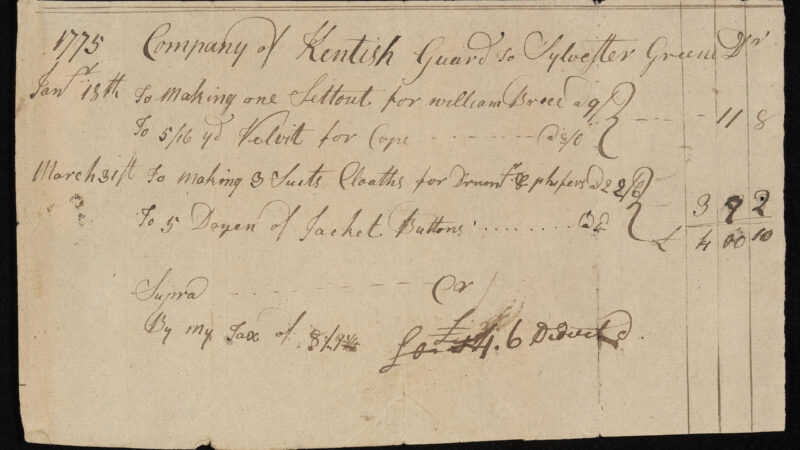 1775 Company of Kentish Guard to Sylvester Greene Dr
Janr 18th To Making one Settout for william Breed a 9/
To 5/16 yd Velvit for Cape - - - - - - - - a 8/6 - - - - 11 8
March 31st To Making 3 Suits Cloaths for Drumr & phifers
To 5 Dozen of Jacket Buttons . . . . . . . . . 3 9 2
£ 4 00 10
Supra - - - - - - - - - - Cr
By my Tax of 8/9 4.6 Deduct d